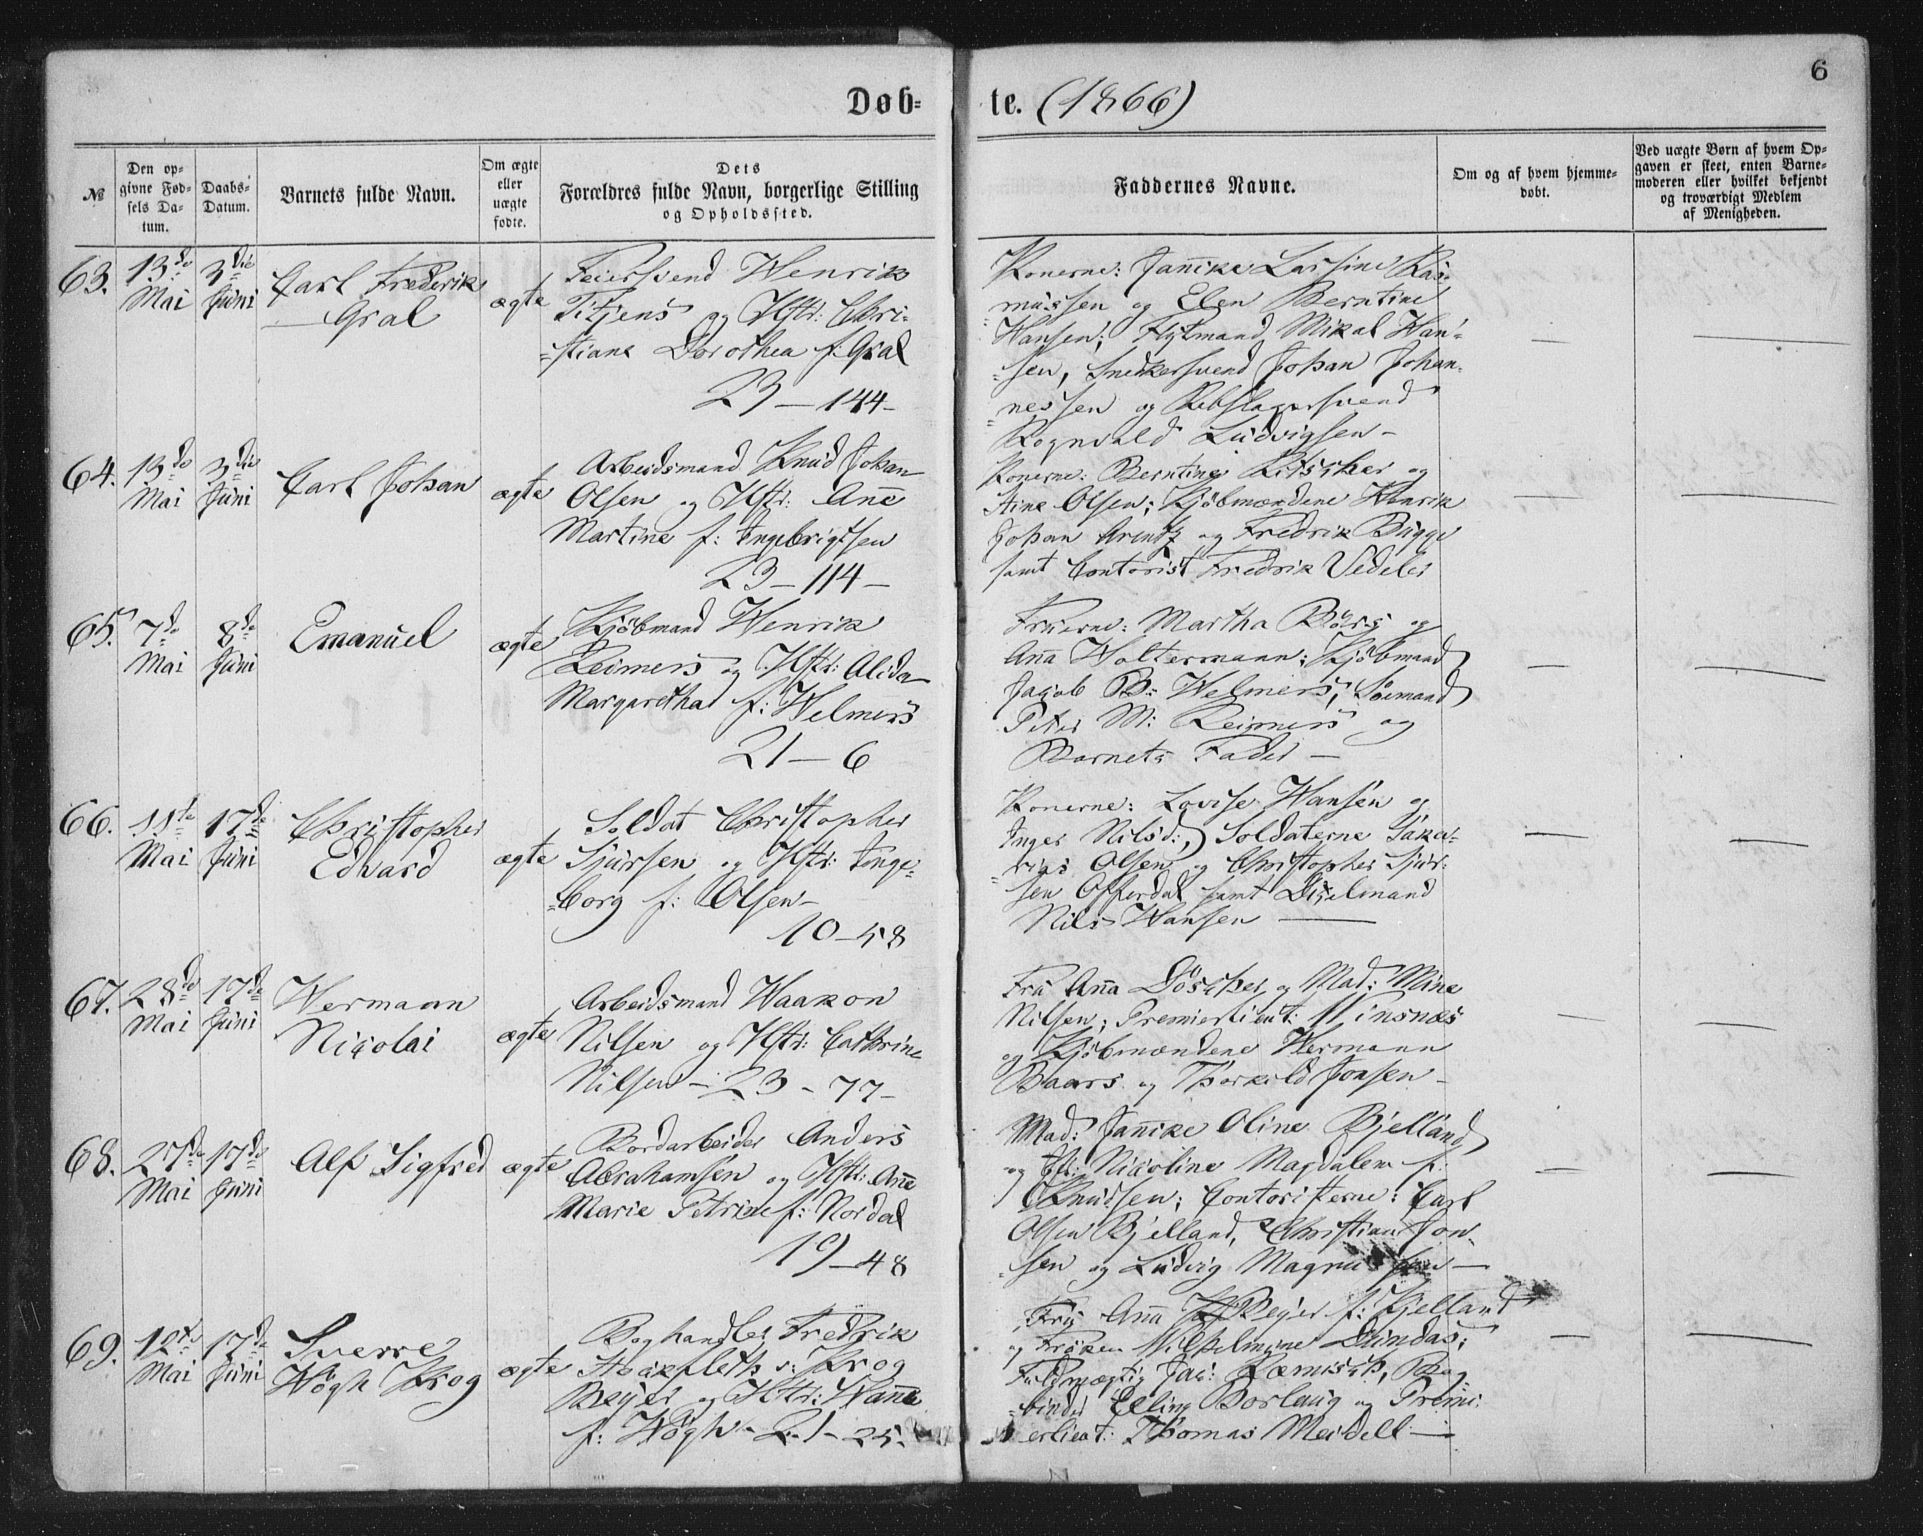 Døb-
te. (1866)
6
№
Den op-
givne Fød-
sels Da-
tum.
Daabs-
Datum.
Barnets fulde Navn.
Om ægte
eller
uægte
fødte.
Dets
Forældres fulde Navn, borgerlige Stilling
og Opholdssted.
Faddernes Navne.
Om og af hvem hjemme-
døbt.
Ved uægte Børn af hvem Op-
gaven er skeet, enten Barne-
moderen eller hvilket bekjendt
og troværdigt Medlem
af Menigheden.
63. 13de Mai 3die Juni
Carl Frederik
Gral
ægte
Feiersvend Henrik
Titjens og Hstr: Chri-
stiane Dorothea f: Gral
23 – 144 –
Konerne: Jannike Larsine Ras-
mussen og Elen Berntine
Hansen; Flytmand Mikal Han-
sen, Snedkersvend Johan Johan-
nessen og Rebslagersvend
Rognvald Ludvigsen –
64. 13de Mai 3die Juni
Carl Johan
ægte
Arbeidsmand Knud Johan
Olsen og Hstr: Anne
Martine f: Ingebrigtsen
23 – 114 –
Konerne: Berntine og
Stine Olsen; Kjøbmændene Henrik
Johan Arentz og Fredrik Bugge
samt Contorist Fredrik Vedeler
65. 7de Mai 8de Juni
Emanuel
ægte
Kjøbmand Henrik
Reimers og Hstr: Alida
Margaretha f: Helmers
21 – 6
Fruerne: Martha Børs og
Anna Woltermann; Kjøbmand
Jacob B: Helmers, Sømand
Peter M: Reimers og
Barnets Fader –
66. 11te Mai 17de Juni
Christopher
Edvard
ægte
Soldat Christopher
Sjursen og Hstr: Inge-
borg f: Olsen –
10 – 58
Konerne: Lovise Hansen og
Inger Nilsd:, Soldaterne Saka-
rias Olsen og Christopher Sjur-
sen Offerdal samt
Nils Hansen –
67. 28de Mai 17de Juni
Hermann
Nicolai
ægte
Arbeidsmand Haakon
Nilsen og Hstr: Cathrine
Nilsen – 23 – 77 –
Fru Anna Døscher og Mad: Mine
Nilsen; Premierlieut:
og Kjøbmændene Hermann
Baars og Thorkild Jonsen –
68. 27de Mai 17de Juni
Alf Sigfred
ægte
Bordarbeider Anders
Abrahamsen og Hstr: Anne
Marie Petrine f: Nordal
19 – 48
Mad: Jannike Oline Bjelland
og Nicoline Magdalene f:
Knudsen; Contoristerne: Carl
Olsen Bjelland, Christian Jon-
sen og Ludvig Magnus
69. 10de Mai 17de Juni
Sverre
Høgh Krog
ægte
Boghandler Fredrik
Stockfleth v: Krog
Beyer og Hstr: Hanna
f: Høgh – 21 – 25 –
Fru Anna Beyer f: Kjelland
og Frøken Wilhelmine Dundas;
Fuldmægtig Jac: Bog-
binder Elling Borlaug og Premi-
erlieut: Thomas Meidell –